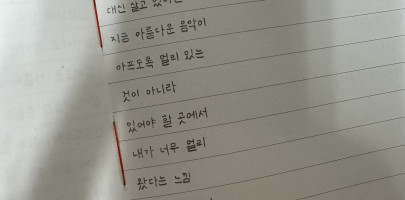 대신 살고 있
지금 아름다운 음악이
아프도록 멀리 있는
것이 아니라
있어야 할 곳에서
내가 너무 멀리
왔다는 느낌